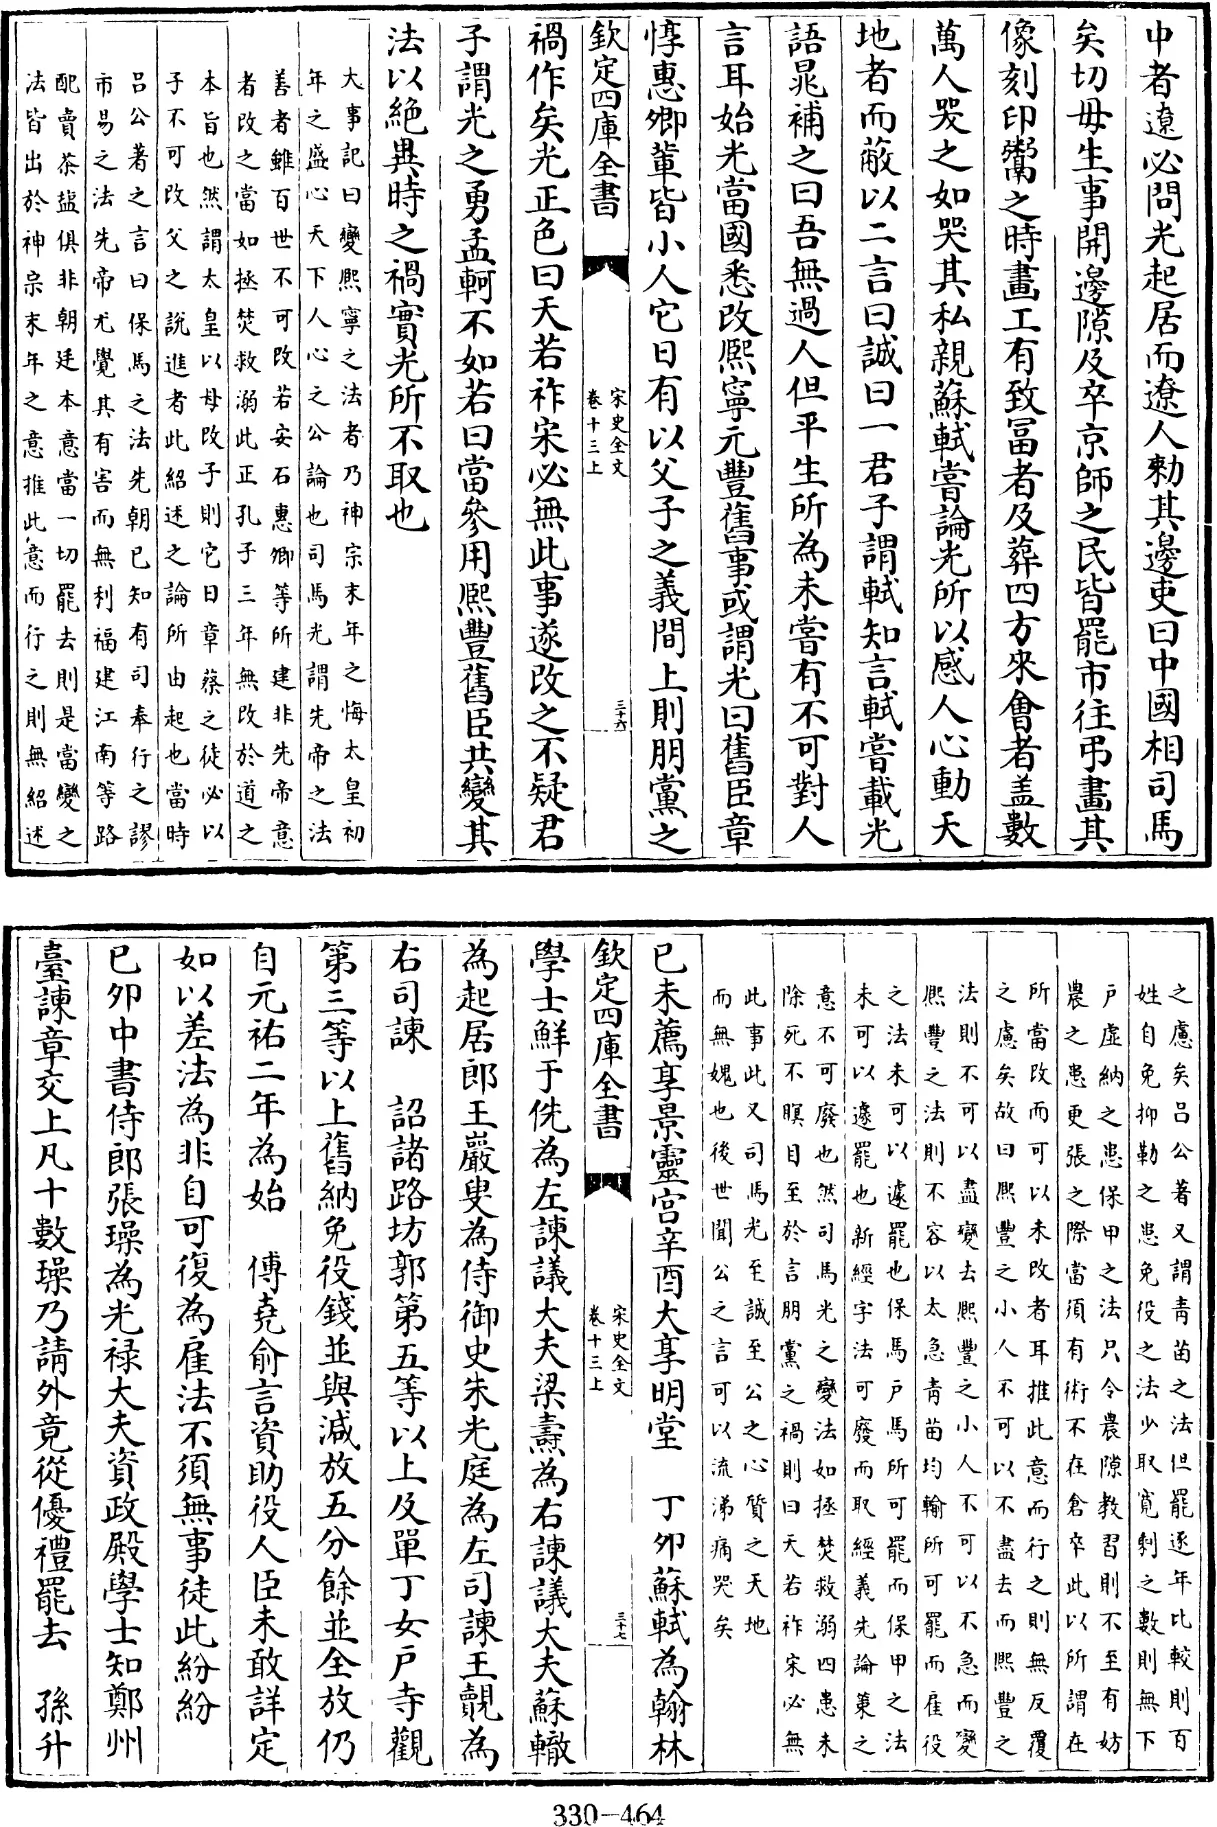 中者遼必問光起居而遼人勑其邊吏曰中國相司馬
矣切毋生事開邊隙及卒京師之民皆罷市往弔畫其
像刻印鬻之時畫工有致冨者及葬四方來會者盖數
萬人哭之如哭其私親蘇軾嘗論光所以感人心動天
地者而蔽以二言曰誠曰一君子謂軾知言軾嘗載光
語晁補之曰吾無過人但平生所為未嘗有不可對人
言耳始光當國悉改熙寧元豐舊事或謂光曰舊臣章
惇惠卿輩皆小人它日有以父子之義間上則朋黨之
欽定四庫全書
宋史全文
卷十三上
三十六
禍作矣光正色曰天若祚宋必無此事遂改之不疑君
子謂光之勇孟軻不如若曰當參用熙豐舊臣共變其
法以絶異時之禍實光所不取也
大事記曰變熙寧之法者乃神宗末年之悔太皇初
年之盛心天下人心之公論也司馬光謂先帝之法
善者雖百世不可改若安石惠卿等所建非先帝意
者改之當如拯焚救溺此正孔子三年無改於道之
本旨也然謂太皇以母改子則它日章蔡之徒必以
子不可改父之說進者此紹述之論所由起也當時
吕公著之言曰保馬之法先朝已知有司奉行之謬
市易之法先帝尤覺其有害而無利福建江南等路
配賣茶鹽俱非朝廷本意當一切罷去則是當變之
法皆出於神宗末年之意推此意而行之則無紹述
之慮矣吕公著又謂青苗之法但罷逐年比較則百
姓自免抑勒之患免役之法少取寛剩之數則無下
户虚納之患保甲之法只令農隙教習則不至有妨
農之患更張之際當須有術不在倉卒此以所謂在
所當改而可以未改者耳推此意而行之則無反覆
之慮矣故曰熙豐之小人不可以不盡去而熙豐之
法則不可以盡變去熙豐之小人不可以不急而變
熙豐之法則不容以太急青苗均輸所可罷而雇役
之法未可以遽罷也保馬戶馬所可罷而保甲之法
未可以遽罷也新經字法可廢而取經義先論策之
意不可廢也然司馬光之變法如拯焚救溺四患未
除死不瞑目至於言朋黨之禍則曰天若祚宋必無
此事此又司馬光至誠至公之心質之天地
而無媿也後世聞公之言可以流涕痛哭矣
已未薦享景靈宫辛酉大享明堂　丁卯蘇軾為翰林
欽定四庫全書
宋史全文
卷十三上
三十七
學士鮮于侁為左諫議大夫梁燾為右諫議大夫蘇轍
為起居郎王巖叟為侍御史朱光庭為左司諫王覿為
右司諫　詔諸路坊郭第五等以上及單丁女戶寺觀
第三等以上舊納免役錢並與減放五分餘並全放仍
自元祐二年為始　傅堯俞言資助役人臣未敢詳定
如以差法為非自可復為雇法不須無事徒此紛紛
已卯中書侍郎張璪為光禄大夫資政殿學士知鄭州
臺諫章交上凡十數璪乃請外竟從優禮罷去　孫升
330-464